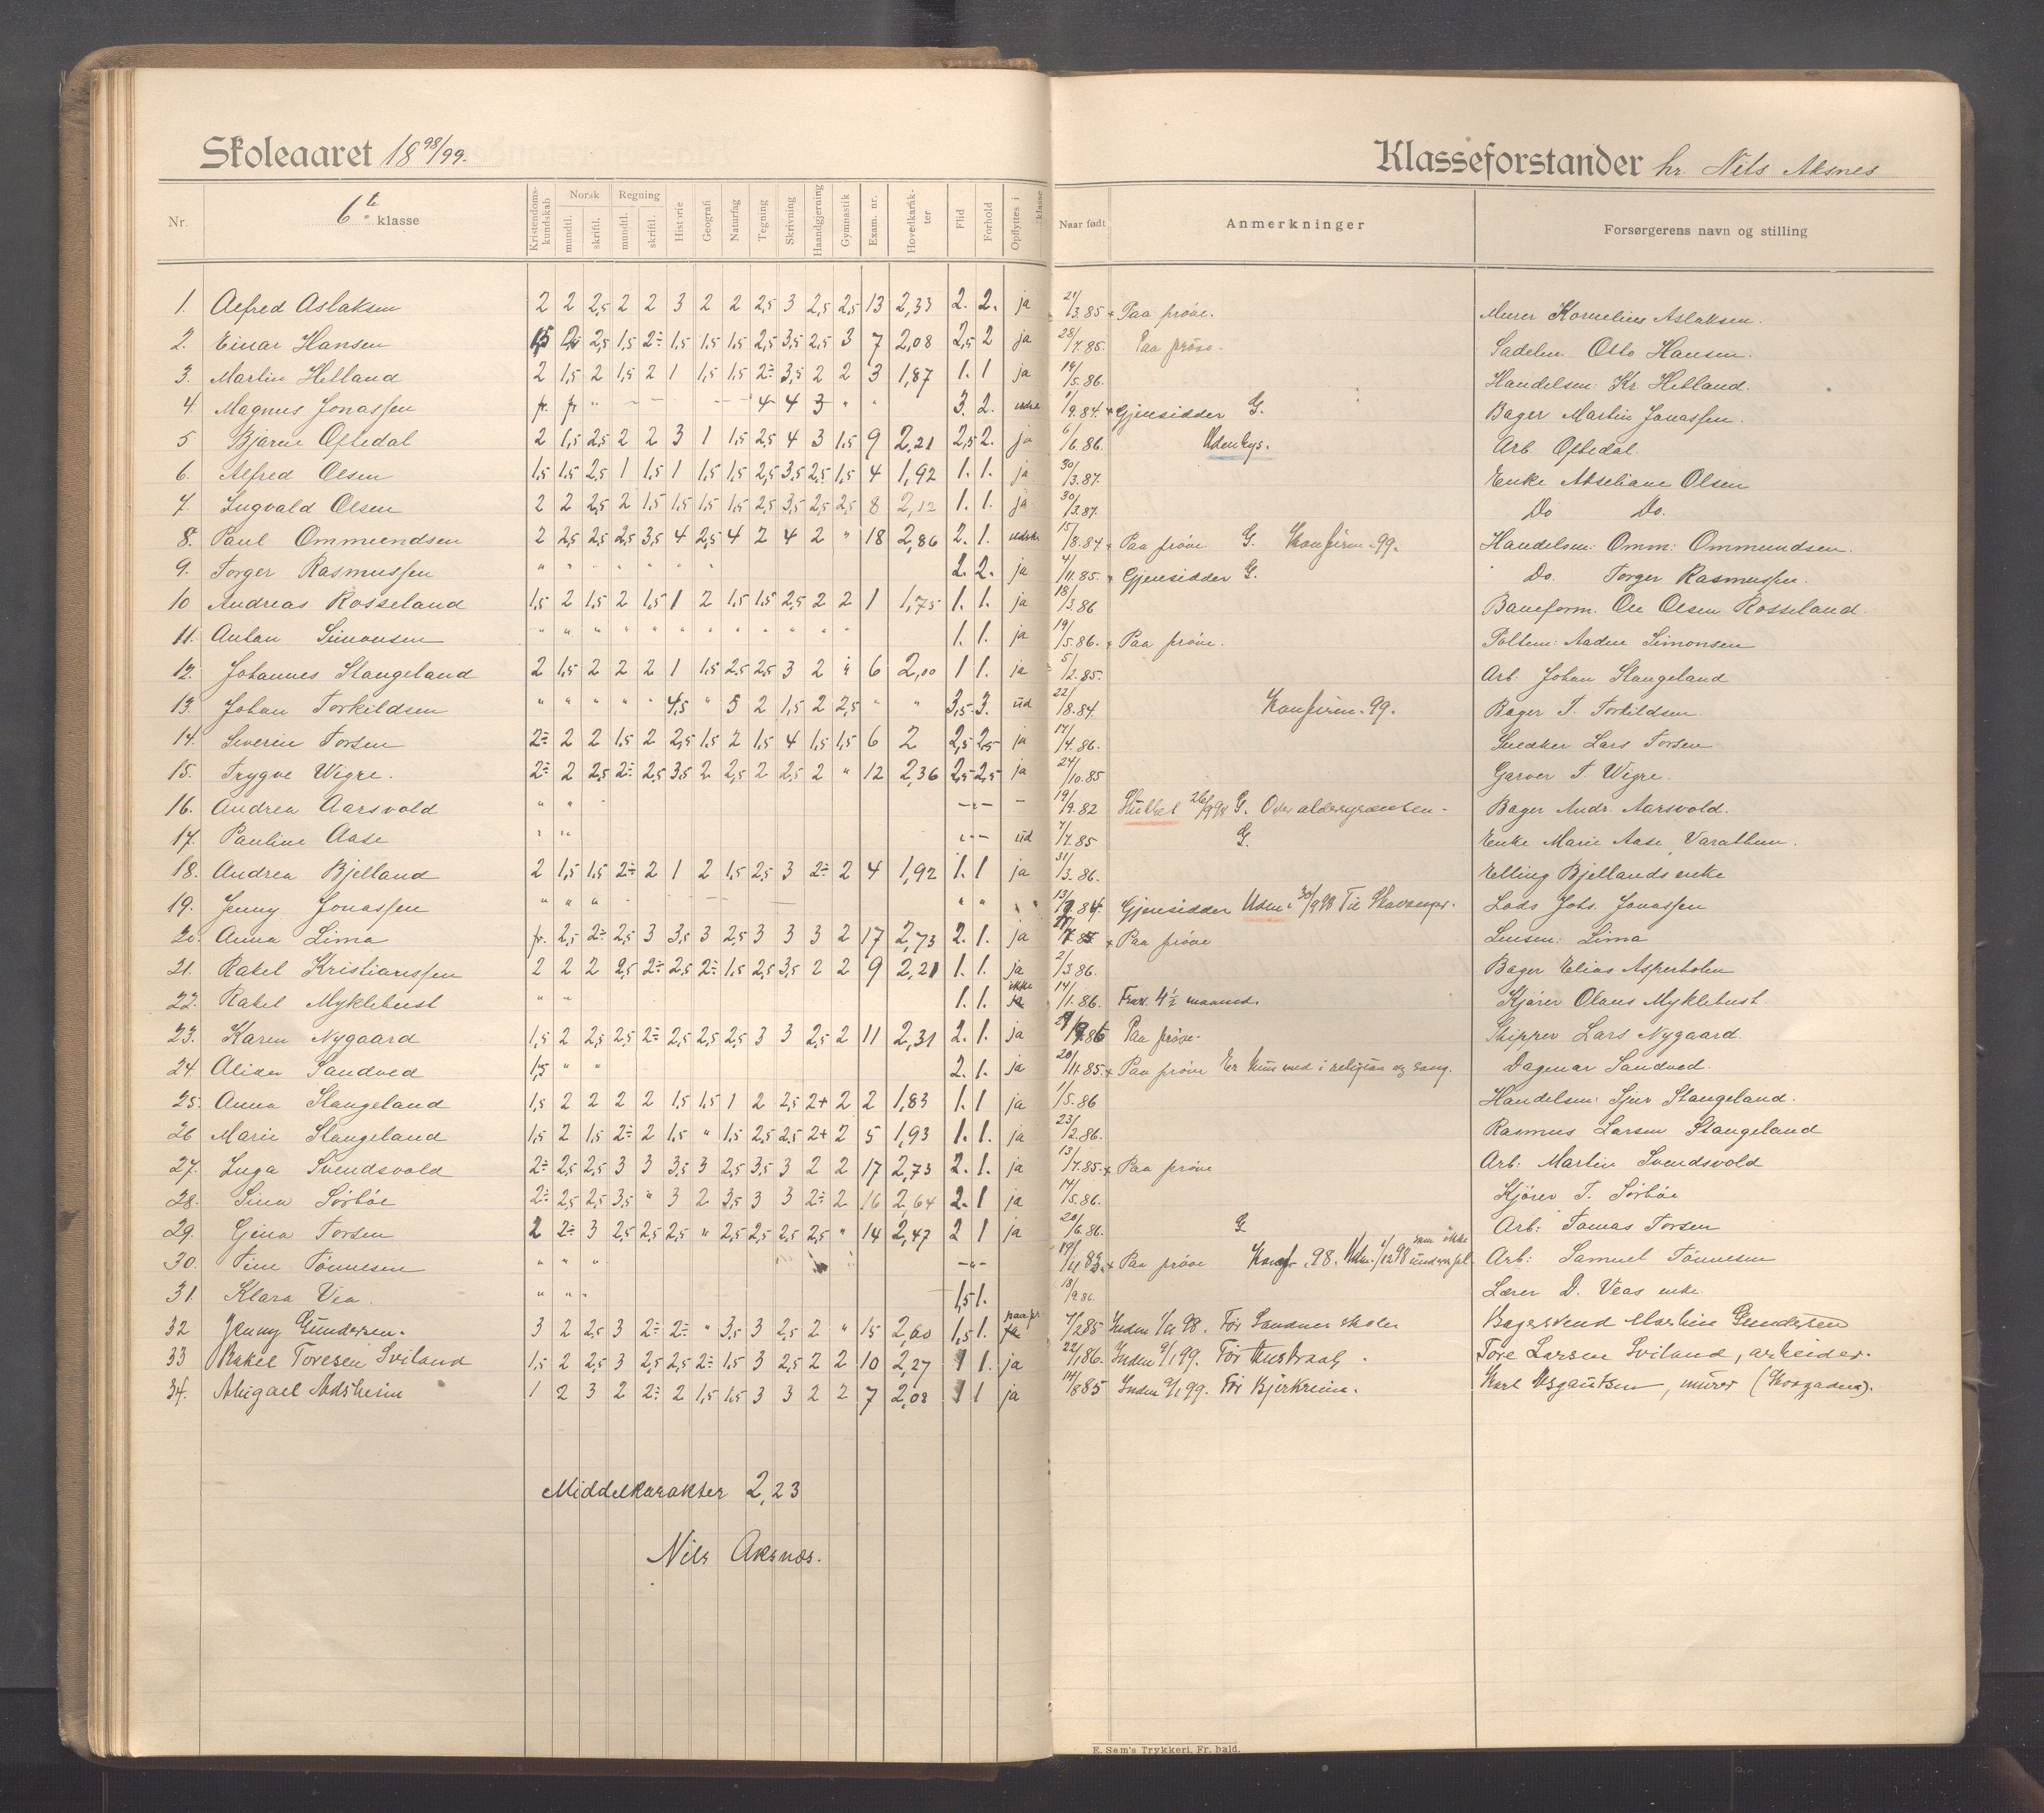 Skoleaaret 18 98/99.
Klasseforstander hr. Nils Aksnes
Nr. 6te klasse Kristendomskundskab Norsk mundtl. skriftl. Regning mundtl. skriftl. Historie Geografi Naturfag Tegning Skrivning Haandgjerning Gymnastik Exam. nr. Hovedkarakter Flid Forhold Opflyttes i klasse Naar født Anmerkninger Forsørgerens navn og stilling
1. Alfred Aslaksen 2 2 2,5 2 2 3 2 2 2,5 3 2,5 2,5 13 2,33 2. 2. ja 21/3.85 + Paa prøve. Murer Kornelius Aslaksen.
2. Einar Hansen 1,5 2 2,5 1,5 2÷ 1,5 1,5 1,5 2,5 3,5 2,5 3 7 2,08 2,5 2 ja 28/7.85. Paa prøve. Sadelm. Otto Hansen.
3. Martin Helland 2 1,5 2 1,5 2 1 1,5 1,5 2÷ 3,5 2 2 3 1,87 1. 1 ja 19/5.86. Handelsm: Kr. Helland.
4. Magnus Jonassen fr. fr " – – – – 4 4 3 " " 3. 2. /9.84. + Gjensidder G. Bager Martin Jonassen.
5 Bjarne Oftedal 2 1,5 2,5 2 2 3 1 1,5 2,5 4 3 1,5 9 2,21 2,5 2. ja 6/6.86 Udenbys. Arb. Oftedal.
6. Alfred Olsen 1,5 1,5 2,5 1 1,5 1 1,5 1,5 2,5 3,5 2,5 1,5 4 1,92 1. 1. ja 30/3.87. Enke Akseliane Olsen
7. Ingvald Olsen 2 2 2,5 2 1,5 1,5 1,5 1,5 2,5 3,5 2,5 2,5 8 2,12 1. 1. ja 30/3.87. Do Do.
8. Paul Ommundsen 2 2,5 2,5 2,5 3,5 4 2,5 4 2 4 2 " 18 2,86 2. 1. 15/8.84 + Paa prøve G. Konfirm. 99. Handelsm: Omm: Ommundsen.
9. Torger Rasmussen " " " " " " " 2. 2. ja 4/11.85. + Gjensidder G. Do. Torger Rasmussen.
10 Andreas Rosseland 1,5 2 1,5 2 1,5 1 2 1,5 1,5 2,5 2 2 1 1,75 1. 1. ja 18/3.86 Baneform. Ole Olsen Rosseland.
11. Anton Simonsen " " " " " " " " " " " " 1. 1. ja 19/5.86. + Paa prøve. Aadne Simonsen
12. Johannes Stangeland 2 1,5 2 2 2 1 1,5 2,5 2,5 3 2 " 6 2,00 1 1. ja 5/2.85. Arb: Johan Stangeland
13. Johan Torkildsen " " " " " 4,5 " 5 2 1,5 2 2,5 " " 3,5. 3. ud 22/8.84. Konfirm. 99. Bager T. Torkildsen.
14. Severin Torsen 2÷ 2 2 1,5 2 2,5 1,5 2 1,5 4 1,5 1,5 6 2 2,5 2,5 ja 14/4.86. Snedker Lars Torsen
15. Trygve Wigre. 2÷ 2 2,5 2÷ 2,5 3,5 2 2,5 2 2,5 2 " 12 2,36 2,5 2,5 ja 24/10.85 Garver T. Wigre.
16. Andrea Aarsvold " " " –"– – 19/9.82 Sluttet 26/9 98 G. Over aldersgrænsen. Bager Andr. Aarsvold.
17. Pauline Aase " " –"– ud /7.85 G. Enke Marie Aase, Varathun.
18. Andrea Bjelland 2 1,5 1,5 2÷ 2 1 2 1,5 2,5 3 2÷ 2 4 1,92 1. 1 ja 31/3.86. Elling Bjellands enke
19. Jenny Jonassen " " " – – – " " 13/9.84. Gjensidder Udm. 30/9 98 Til Stavanger. Lods Johs. Jonassen
20. Anna Lima fr. 2,5 2÷ 2,5 3 3,5 3 2,5 3 3 3 2 17 2,73 2. 1. ja /7.85 + Paa prøve Lima
21. Rakel Kristianssen 2 2 2 2,5 2÷ 2,5 2÷ 1,5 2,5 3,5 2 2 9 2,21 1. 1. ja 2/3.86. Bager Elias Asperholm
22. Rakel Myklebust " " 1. 1. ikke ja 14/1.86. Frav. 4 1/2 maaned. Kjører Olaus Myklebust.
23. Karen Nygaard 1,5 2 2,5 2,5 2÷ 2,5 2,5 2,5 3 3 2,5 2 11 2,31 2. 1. ja 29/9.86 Paa prøve. Skipper Lars Nygaard.
24. Alida Sandved 1,5 " " 2. 1. ja 20/11.85. + Paa prøve Er kun med i religion og sang. Dagmar Sandved.
25. Anna Stangeland 1,5 2 2 2 2 1,5 1,5 1 2 2,5 2+ 2 2 1,83 1. 1 ja 1/5.86 Handelsm: Sjur Stangeland.
26 Marie Stangeland 1,5 2 1,5 2÷ 2 1,5 " 1,5 2,5 2,5 2+ 2 5 1,93 1. 1. ja 23/2.86. Rasmus Larsen Stangeland
27. Inga Svendsvold 2÷ 2,5 2,5 3 3 3,5 3 2,5 3,5 3 2 2 17 2,73 2. 1. ja 13/7.85. + Paa prøve Arb: Martin Svendsvold
28. Sina Sørbøe 2÷ 2,5 2,5 3,5 " 3 2 3,5 3 3 2÷ 2 16 2,64 2. 1 ja 14/5.86. Kjører T. Sørbøe
29. Gina Torsen 2 2÷ 3 2,5 2,5 2,5 " 2,5 2,5 2,5 2,5 " 14 2,47 2 1 ja 20/6.86. G. Arb: Tomas Torsen
30. Tine Tønnesen " " " –"– 19/11.83. + Paa prøve Konf. 98. Udm. 1/12 98 men ikke Arb: Samuel Tønnesen
31. Klara Vea. " " " 1,5 1. 18/9.86. Lærer D. Veas enke.
32 Jenny Gundersen. 3 2 2,5 3 2÷ 2÷ " 3,5 3 2,5 2 " 15 2,60 1,5 1. paa pr. ja 7/2 85 Indm 98. Før Sandnes skoler Bagersvend Martin Gundersen
33 Rakel Toresen Sviland 1,5 2 2,5 3 2,5 2,5 2÷ 1,5 3 2,5 2 2 10 2,27 1 1. ja 22/1 86. Indm 9/1 99. Før Austraat. Tore Larsen Sviland, arbeider.
34. Abigael Aadsheim 1 2 3 2 2÷ 2 1,5 1,5 3 3 2 2 7 2,08 1 1 ja 14/8 85 Indm 9/1 99. Før Bjerkreim. Karl Asgautsen, murer
Middelkarakter 2,23
Nils Aksnes.
E. Sem's Trykkeri, Fr. hald.